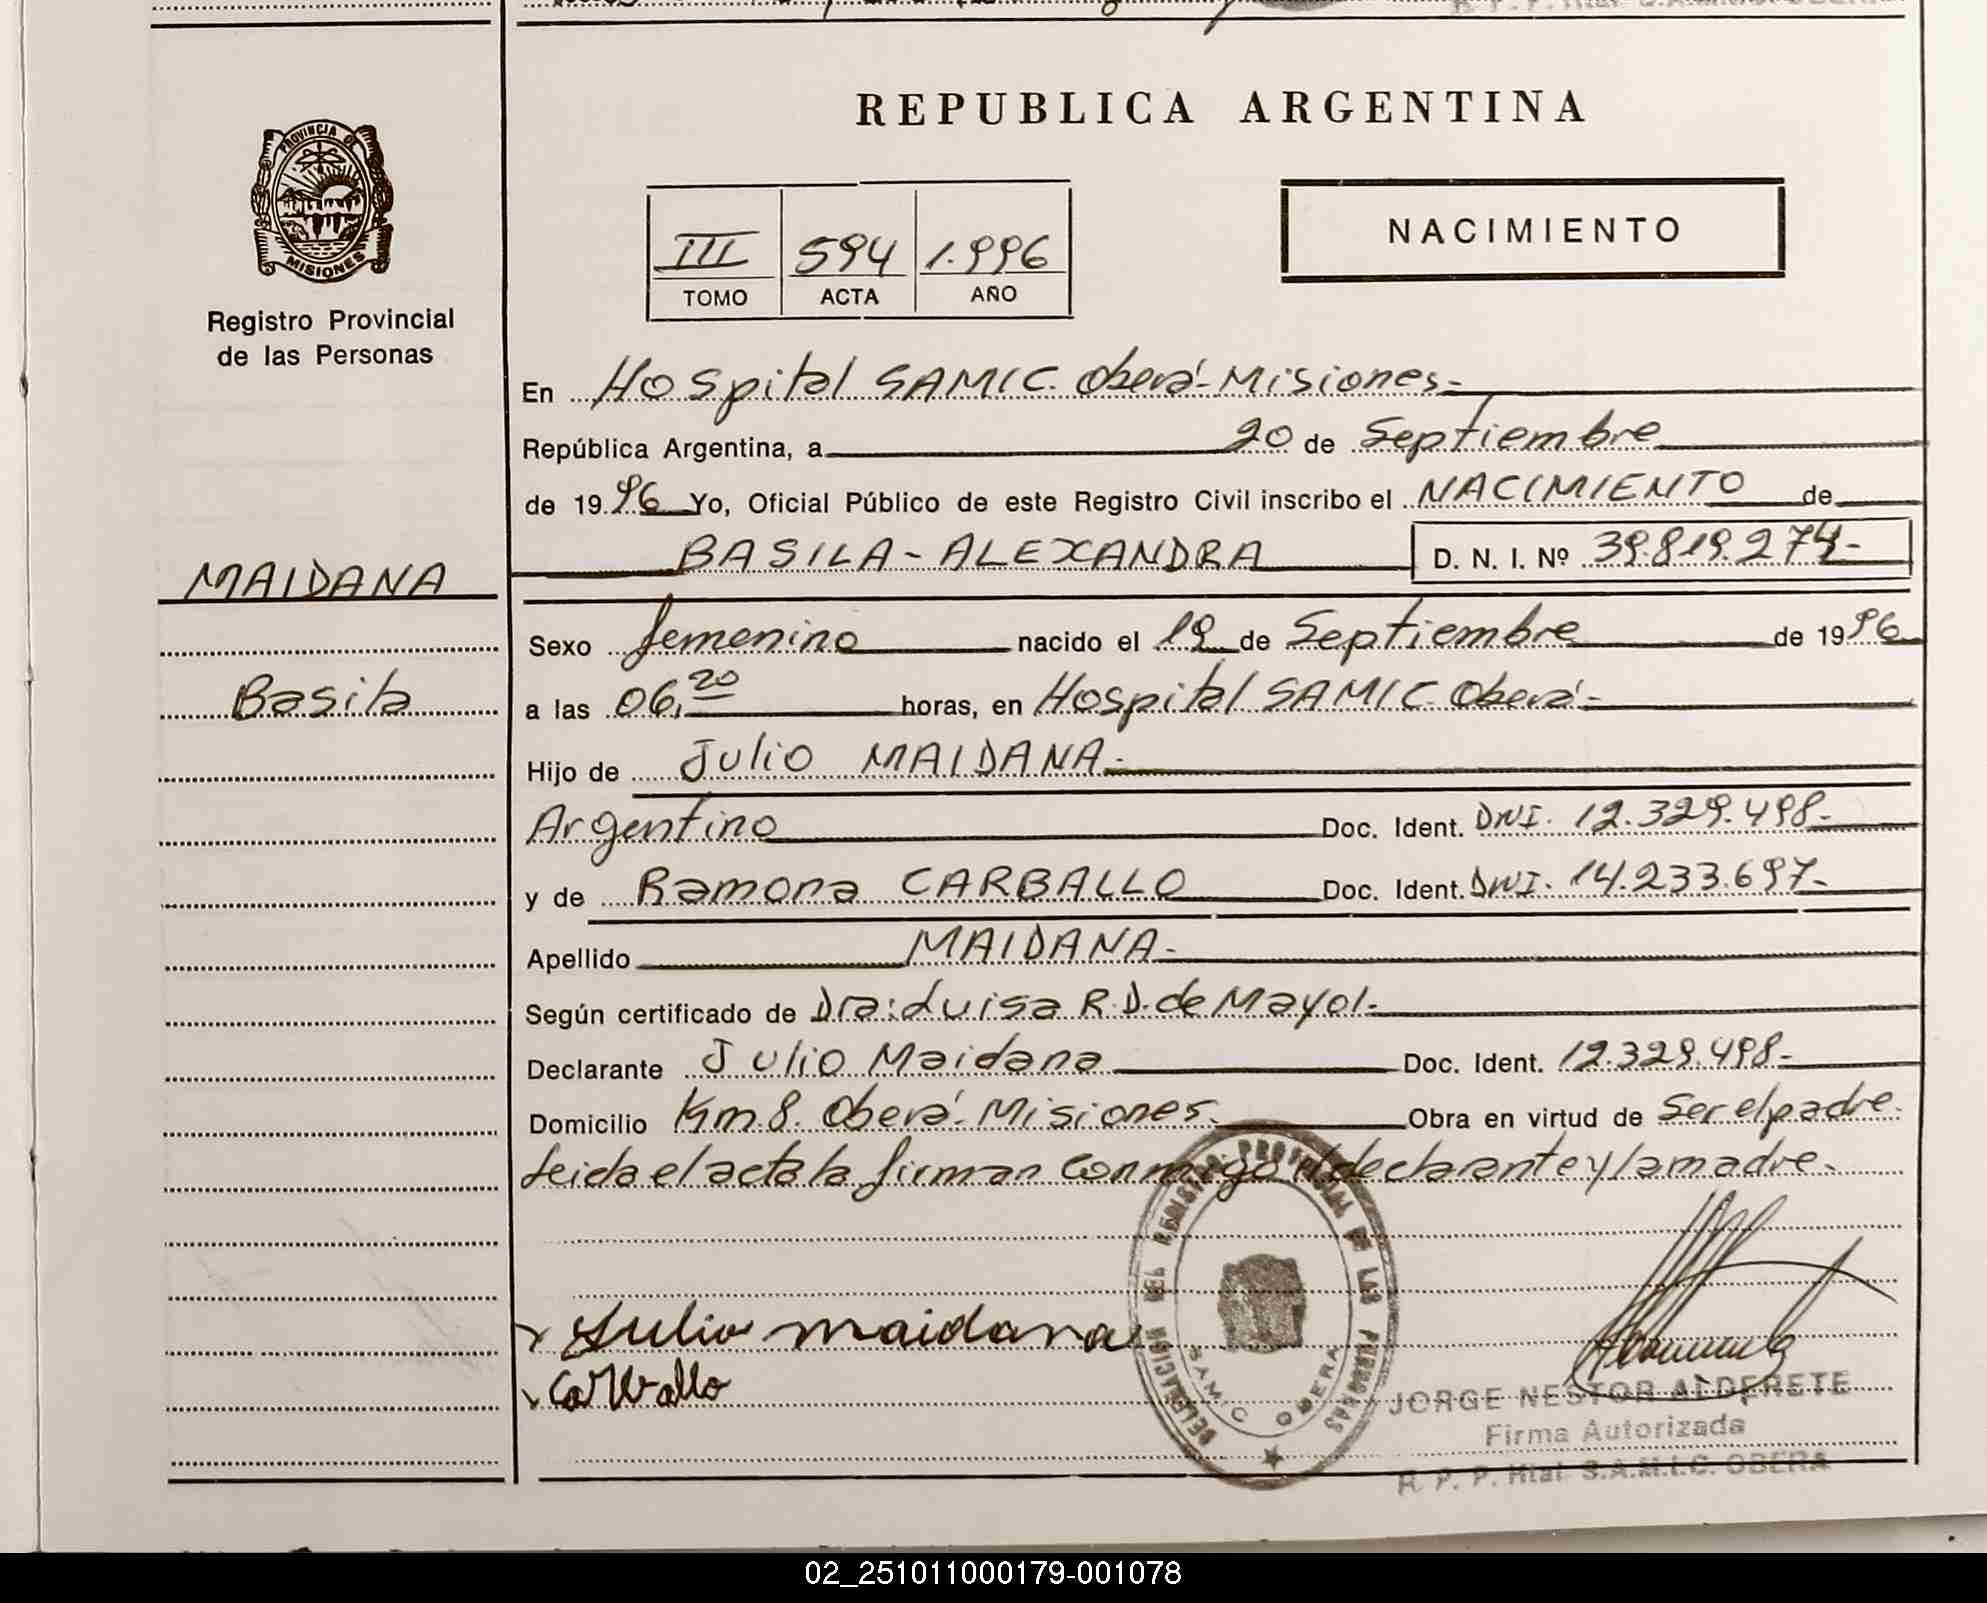 REPUBLICA ARGENTINA
PROVINCIA DE
MISIONES
Registro Provincial
de las Personas
III 594 1.996
TOMO ACTA AÑO
NACIMIENTO
En Hospital SAMIC. Oberá-Misiones-
República Argentina, a 20 de Septiembre
de 19 96 Yo, Oficial Público de este Registro Civil inscribo el NACIMIENTO de
BASILA-ALEXANDRA D. N. I. Nº 39.819.274-
MAIDANA
Sexo femenino nacido el 19 de Septiembre de 19 96
Basila
a las 06,20 horas, en Hospital SAMIC. Oberá-
Hijo de Julio MAIDANA-
Argentino Doc. Ident. DNI. 12.329.498-
y de Ramona CARBALLO Doc. Ident. DNI. 14.233.697-
Apellido MAIDANA-
Según certificado de Dra: Luisa R.D. de Mayol-
Declarante Julio Maidana Doc. Ident. 12.329.498-
Domicilio Km 8. Oberá-Misiones- Obra en virtud de Ser el padre.
Leida el acta la firman conmigo el declarante y la madre.
Julio maidana
Carballo
DELEGACION DEL REGISTRO PROVINCIAL DE LAS PERSONAS
SAMIC OBERA
JORGE NESTOR ALDERETE
Firma Autorizada
R. P. P. Htal S.A.M.I.C. OBERA
02_251011000179-001078